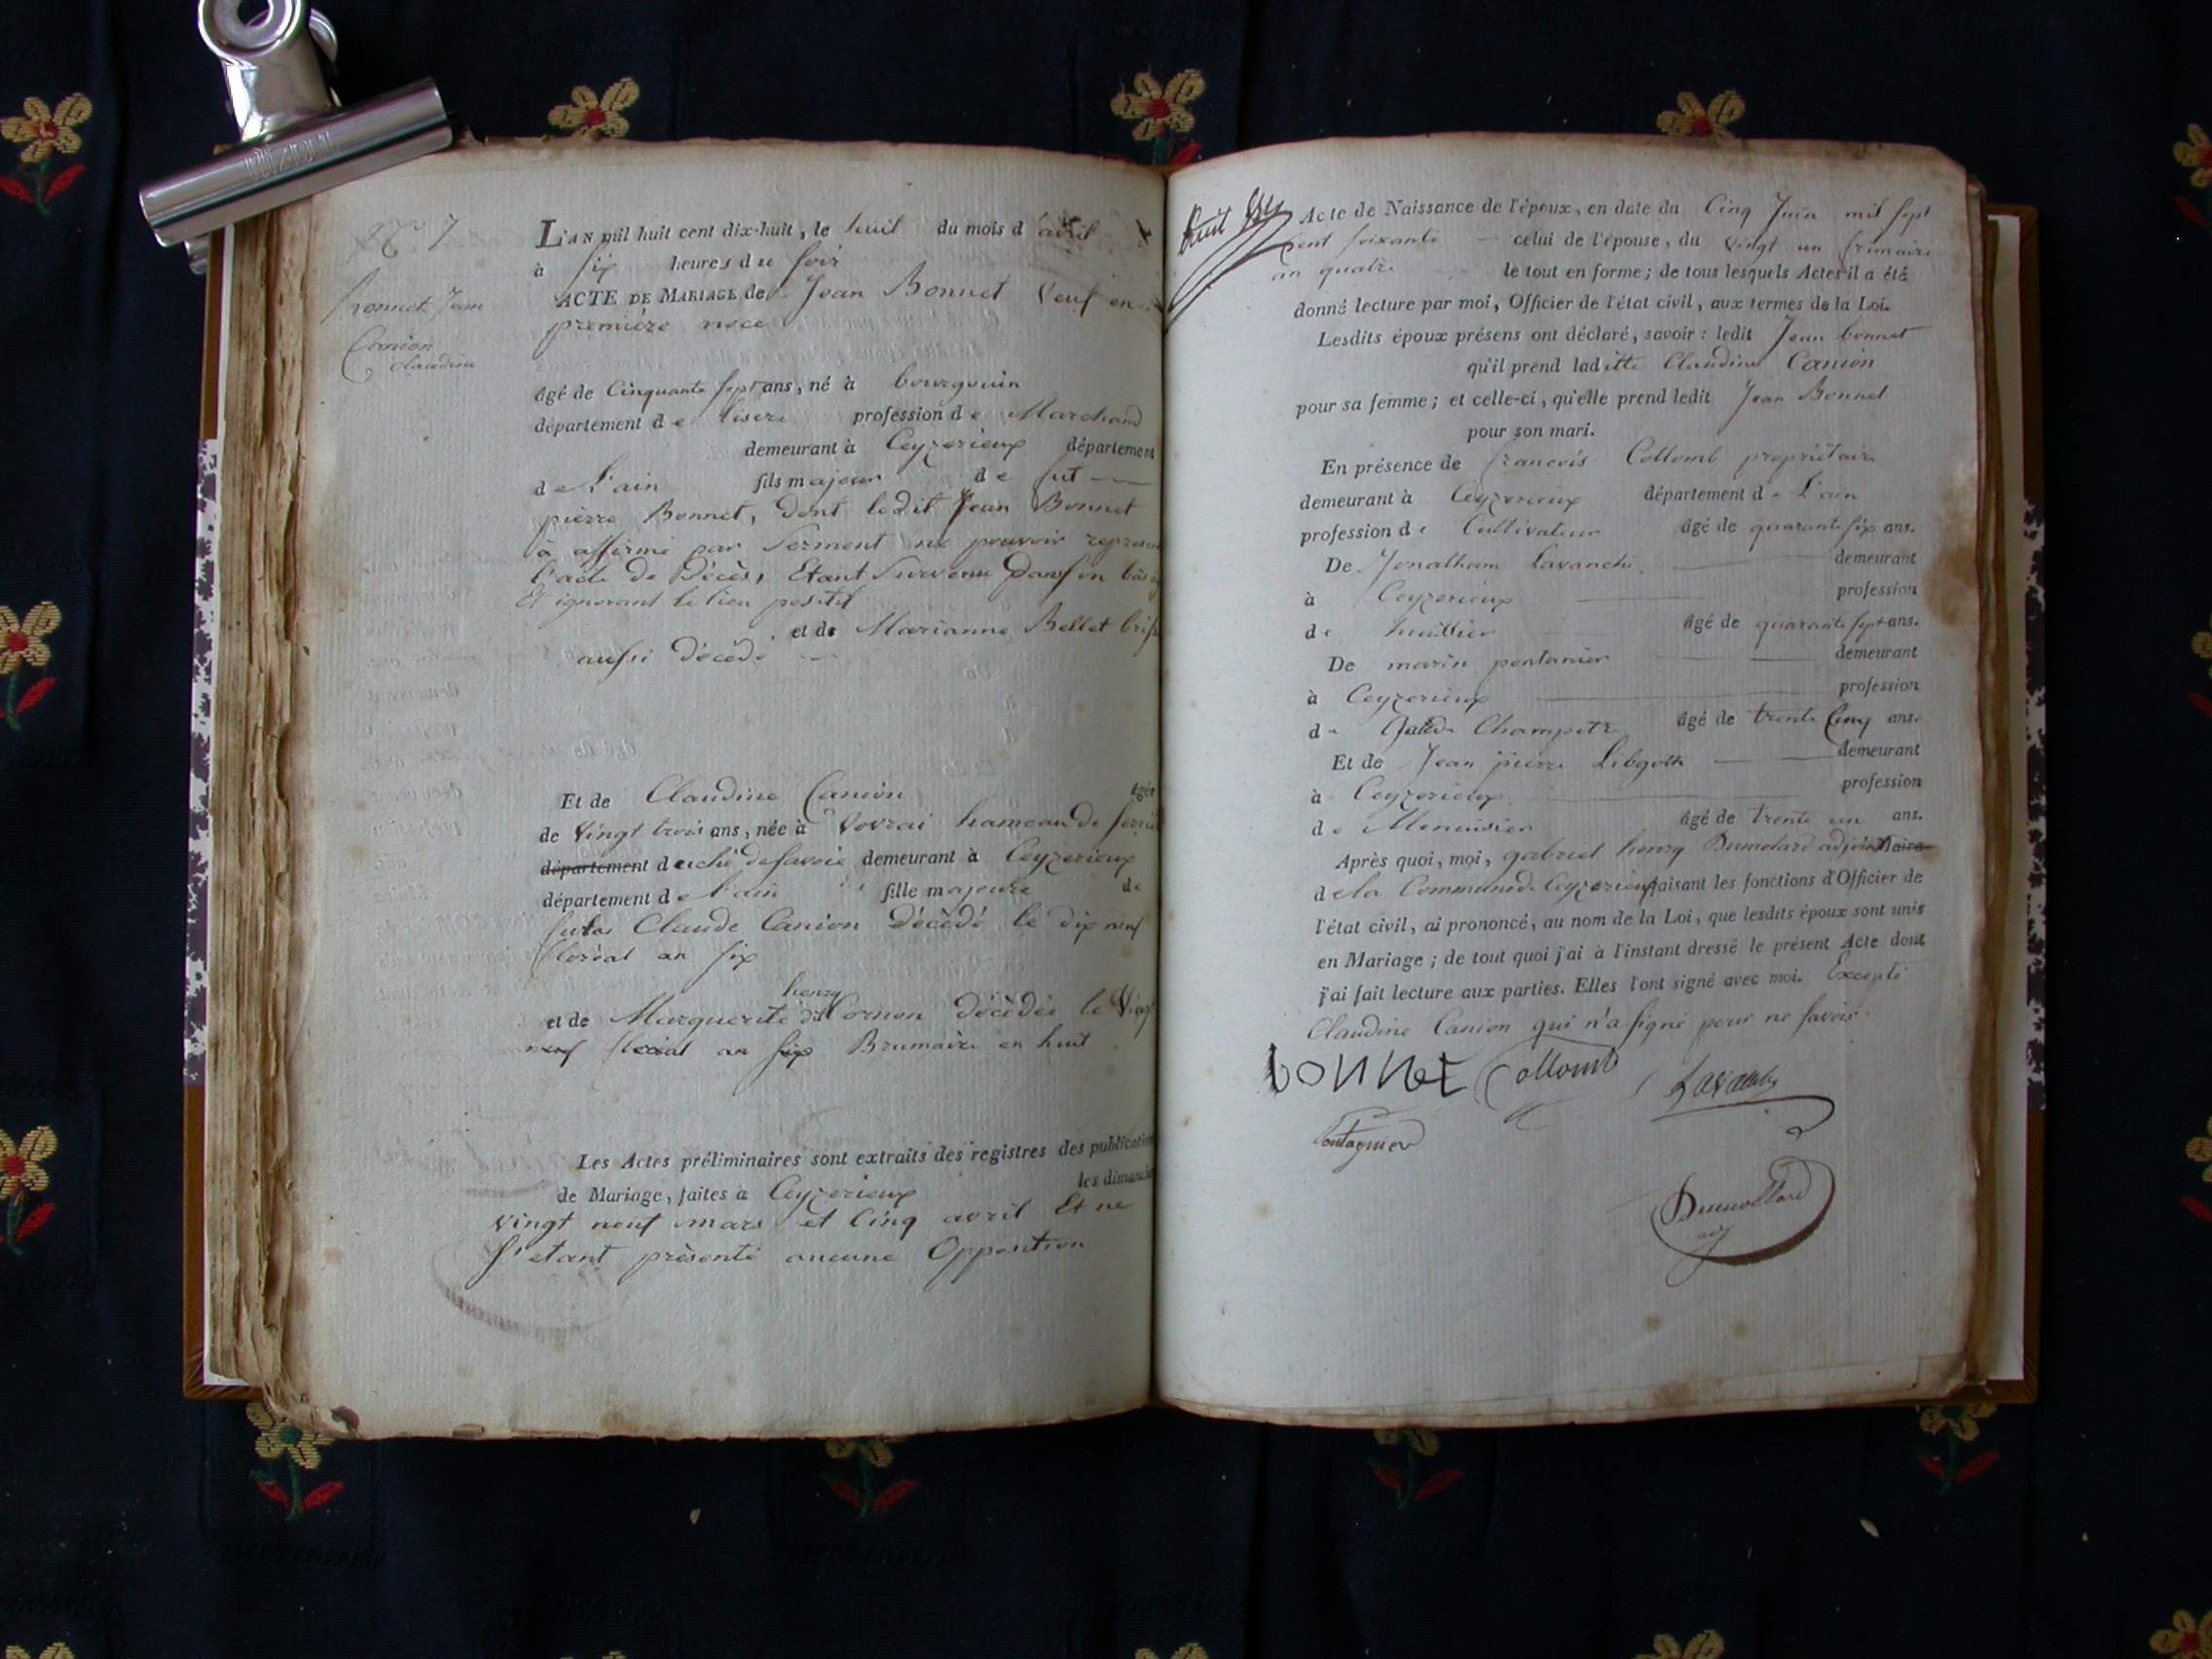 N.° 7
Bonnet Jean
Canion
Claudine
L'AN mil huit cent dix-huit, le huit du mois d'avril
à six heures du soir
ACTE DE MARIAGE de Jean Bonnet Veuf en
première noce
âgé de Cinquante sept ans, né à bourgouin
département de lisere profession de Marchand
demeurant à Ceyzerieux département
de L'ain fils majeur de fut
pierre Bonnet, dont ledit Jean Bonnet
à affirmé par Serment ne pouvoir
l'acte de Décès, Etant Survenu
Et ignorant le lieu positif
et de Marianne Bellet
aussi décédé
Et de Claudine Canion âgée
de Vingt trois ans, née à Vovrai hameau de
département duché de Savoie demeurant à Ceyzerieux
département de L'ain fille majeure de
Claude Canion Décédé le dix neuf
floréal an six
henry
et de Marguerite dit Cornon décédée le Vingt
neuf floréal an six Brumaire an huit
Les Actes préliminaires sont extraits des registres des publication
de Mariage, faites à Ceyzerieux les dimanch
Vingt neuf mars et Cinq avril Et ne
S'etant présenté aucune Opposition
huit
Acte de Naissance de l'époux, en date du Cinq Juin mil sept
Cent soixante celui de l'épouse, du Vingt un frimaire
an quatre le tout en forme; de tous lesquels Actes il a été
donné lecture par moi, Officier de l'état civil, aux termes de la Loi.
Lesdits époux présens ont déclaré, savoir: ledit Jean bonnet
qu'il prend laditte Claudine Canion
pour sa femme; et celle-ci, qu'elle prend ledit Jean Bonnet
pour son mari.
En présence de francois Collomb propriétaire
demeurant à Ceyzerieux département de L'ain
profession de Cultivateur âgé de quarante six ans.
De Jonatham Lavanchi demeurant
à Ceyzerieux profession
de huissier âgé de quarante sept ans.
De marin pontanier demeurant
à Ceyzerieux profession
de Garde Champetre âgé de trente Cinq ans.
Et de Jean pierre Libgoth demeurant
à Ceyzerieux profession
de Menuisier âgé de trente un ans.
Après quoi, moi, gabriel henry Dumolard adjoint Maire
de la Commune de Ceyzerieux faisant les fonctions d'Officier de
l'état civil, ai prononcé, au nom de la Loi, que lesdits époux sont unis
en Mariage; de tout quoi j'ai à l'instant dressé le présent Acte dont
j'ai fait lecture aux parties. Elles l'ont signé avec moi. Excepté
Claudine Canion qui n'a signé pour ne savoir
bonnet Collomb Lavanchy
Pontagnier
Dumollard
adj